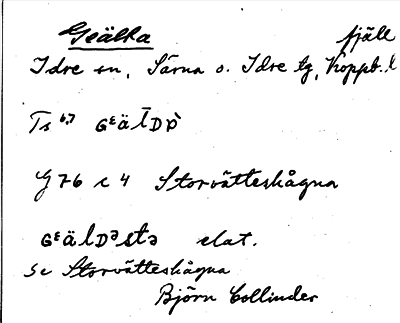 Geälta fjäll
Idre sn, Särna o. Idre tg, Koppb. l
Ts 6,7 Gᵋäl̄Dò̀
G 76 c 4 Storvätteshågna
GᵋälDᵊstə elat.
se Storvätteshågna
Björn Collinder